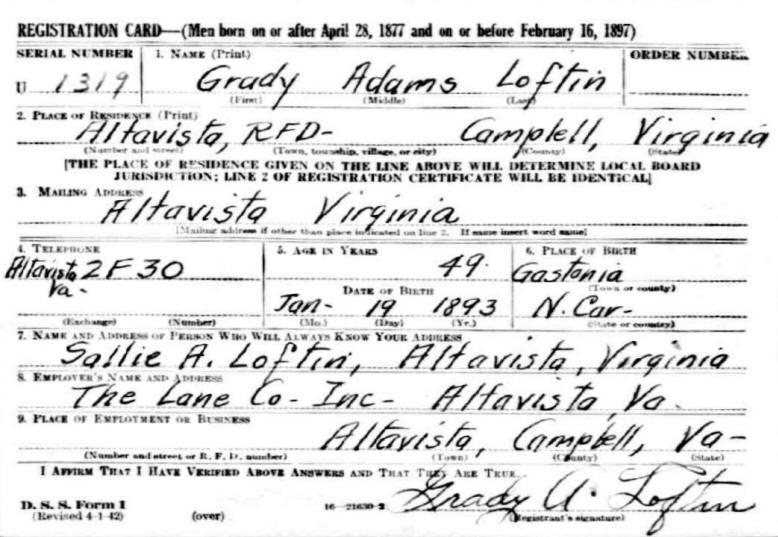 REGISTRATION CARD—(Men born on or after April 28, 1877 and on or before February 16, 1897)
SERIAL NUMBER 1. NAME (Print) ORDER NUMBER
U 1319 Grady Adams Loftin
(First) (Middle) (Last)
2. PLACE OF RESIDENCE (Print)
Altavista, RFD- Campbell, Virginia
(Number and street) (Town, township, village, or city) (County) (State)
[THE PLACE OF RESIDENCE GIVEN ON THE LINE ABOVE WILL DETERMINE LOCAL BOARD
JURISDICTION; LINE 2 OF REGISTRATION CERTIFICATE WILL BE IDENTICAL]
3. MAILING ADDRESS
Altavista Virginia
[Mailing address if other than place indicated on line 2. If same insert word same]
4. TELEPHONE 5. AGE IN YEARS 6. PLACE OF BIRTH
Altavista 2F30 49. Gastonia
Va- (Town or county)
DATE OF BIRTH
Jan- 19 1893 N. Car-
(Exchange) (Number) (Mo.) (Day) (Yr.) (State or country)
7. NAME AND ADDRESS OF PERSON WHO WILL ALWAYS KNOW YOUR ADDRESS
Sallie A. Loftin, Altavista, Virginia
8. EMPLOYER'S NAME AND ADDRESS
The Lane Co- Inc- Altavista, Va.
9. PLACE OF EMPLOYMENT OR BUSINESS
Altavista, Campbell, Va-
(Number and street or R. F. D. number) (Town) (County) (State)
I AFFIRM THAT I HAVE VERIFIED ABOVE ANSWERS AND THAT THEY ARE TRUE.
D. S. S. Form 1 Grady A. Loftin
(Revised 4-1-42) (over) 16—21630-2 (Registrant's signature)